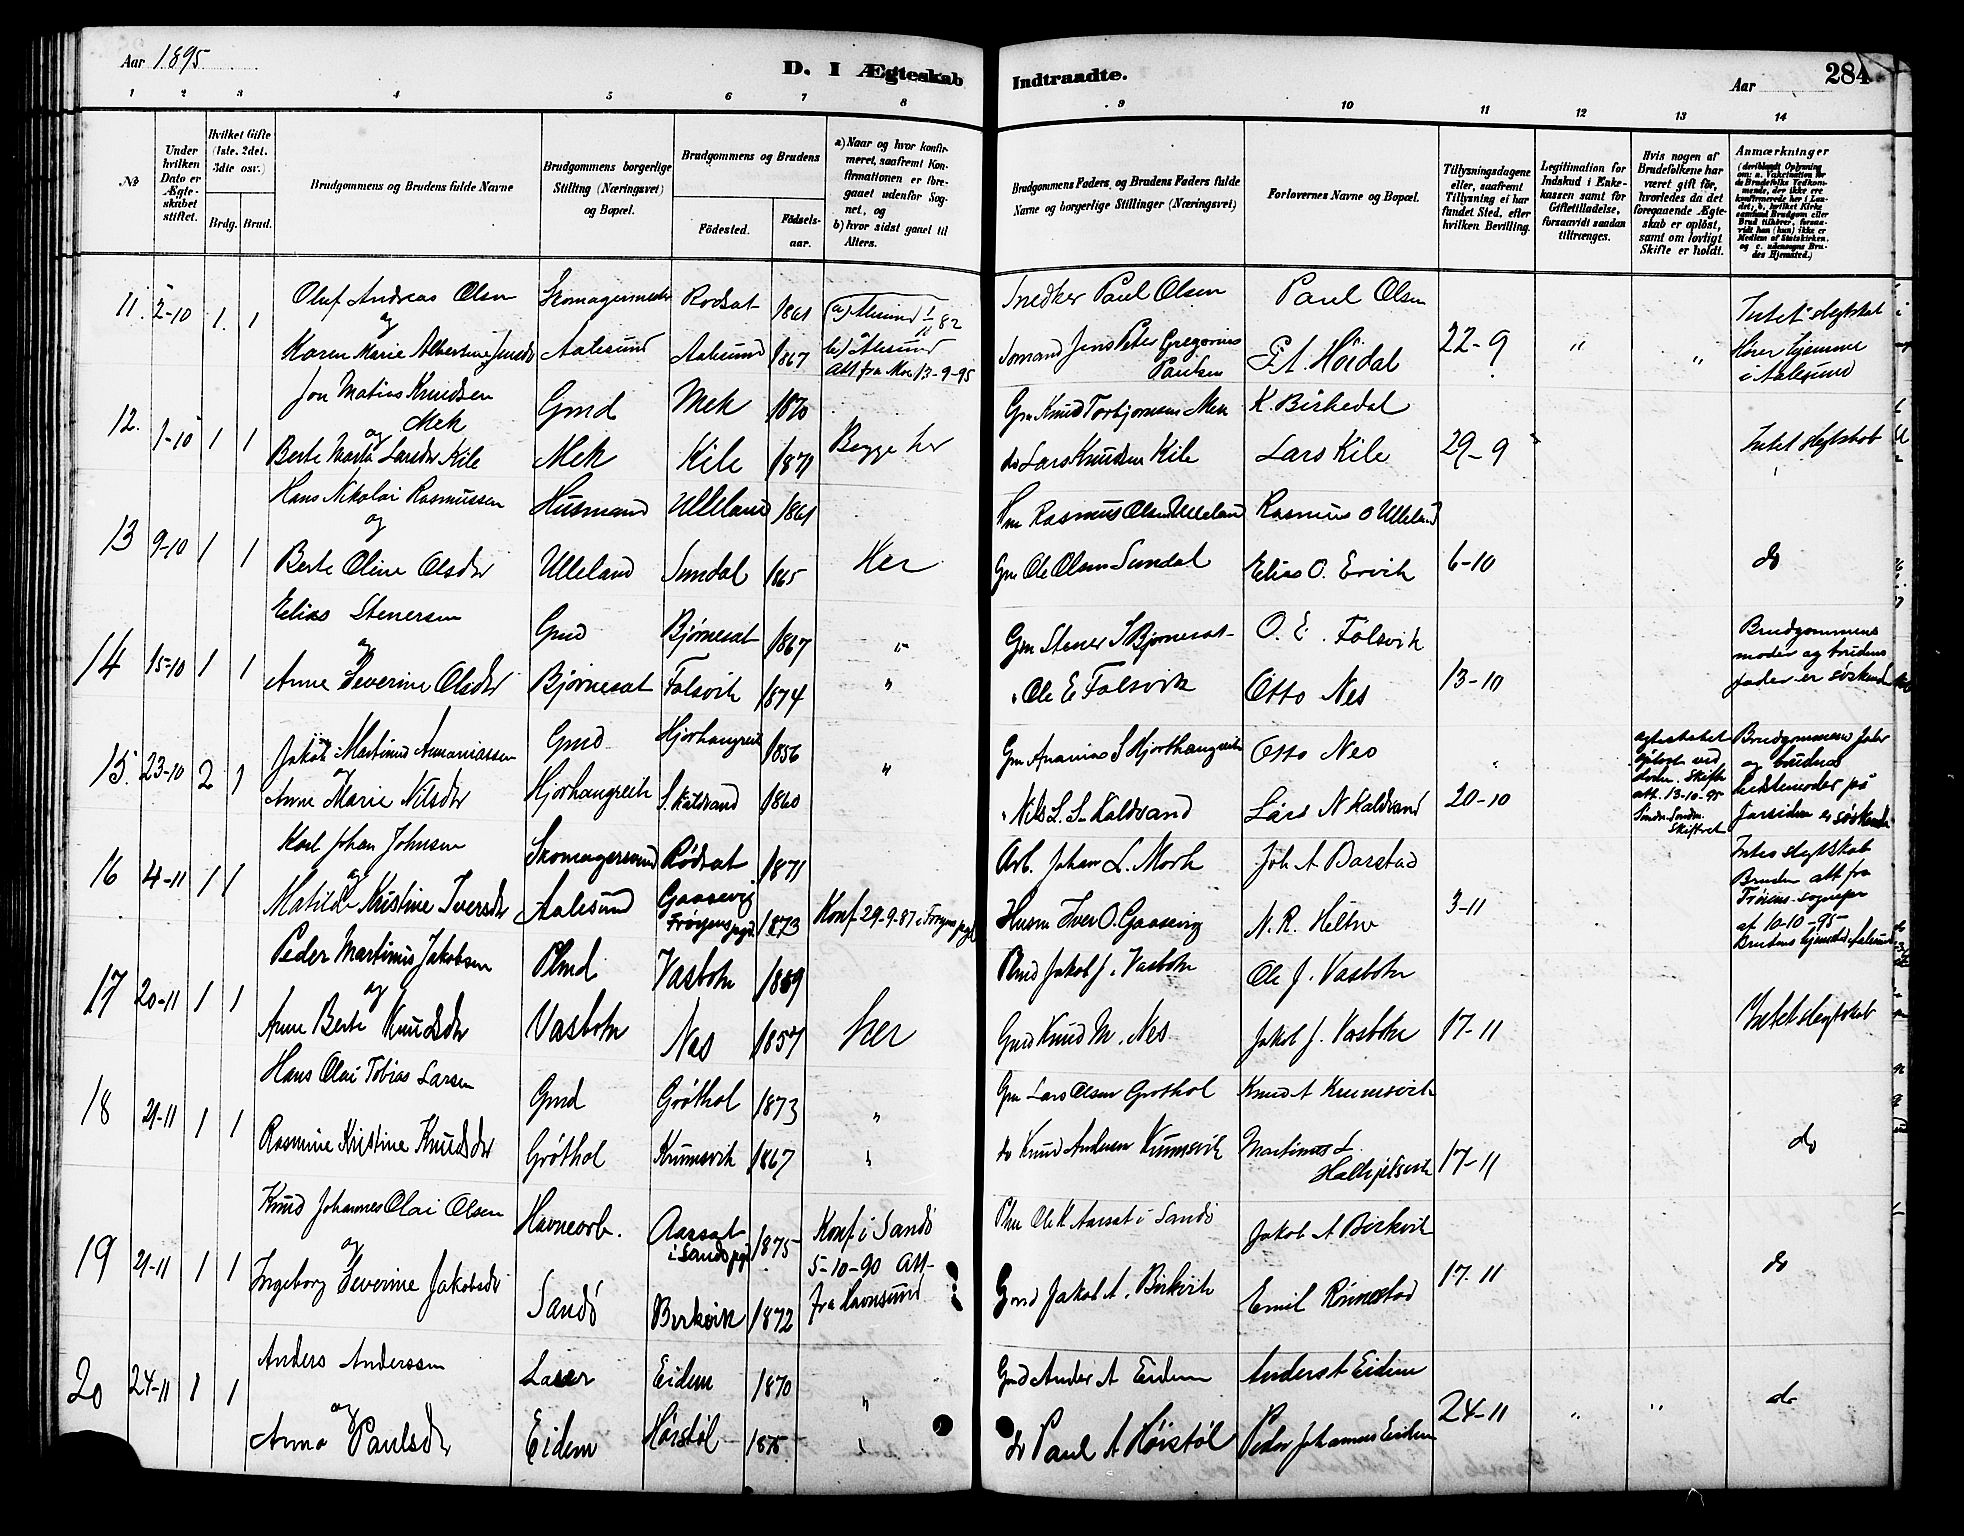 Aar 1895
D. I Ægteskab
Indtraadte.
Aar
284
1 2 3 4 5 6 7 8 9 10 11 12 13 14
No
Under hvilken Dato er Ægteskabet stiftet.
Hvilket Gifte (1ste. 2det. 3die osv.)
Brdg. Brud.
Brudgommens og Brudens fulde Navne
Brudgommens borgerlige Stilling (Næringsvei) og Bopæl.
Brudgommens og Brudens
Födested.
Födselsaar.
a) Naar og hvor konfirmeret, saafremt Konfirmationen er foregaaet udenfor Sognet, og
b) hvor sidst gaaet til Alters.
Brudgommens Faders, og Brudens Faders fulde Navne og borgerlige Stillinger (Næringsvei)
Forlovernes Navne og Bopæl.
Tillysningsdagene eller, saafremt Tillysning ei har fundet Sted, efter hvilken Bevilling.
Legitimation for Indskud i Enkekassen samt for Giftetilladelse, forsaavidt saadan tiltrænges.
Hvis nogen af Brudefolkene har været gift för, hvorledes da det foregaaende Ægteskab er oplöst, samt om lovligt Skifte er holdt.
Anmærkninger
11. 2-10 1. 1
Oluf Andreas Olsen Skomagermester Rodsat 1861
og
Karen Marie Albertine Jensdr Aalesund Aalesund 1867
b) Aalesund
13-9-95
Snedker Paul Olsen Paul Olsen
Jens Peter Gregorius Paulsen
Höidal 22-9 " "
Intet slegtskab
Hører hjemme
i Aalesund
12. 1-10 1 1
Jon Matias Knudsen
Mek Gmd Mek 1870
og
Berte Marta Larsdr Kile Mek Kile 1871 Begge her
Gm Knud Torbjornsen Mek K. Birkedal
do Lars Knudsen Kile Lars Kile 29-9
Intet slegtskab
13 9-10 1 1
Hans Nikolai Rasmussen Husmand Ulleland 1861
og
Berte Oline Olsdr Ulleland Sundal 1865 Her
Hm Rasmus Olsen Ulleland Rasmus O Ulleland
Gm Ole Olsen Sundal Elias O. Ervik 6-10 do
14 15-10 1 1
Elias Stenersen Gmd Bjørnesat 1867 "
og
Anne Severine Olsdr Bjørnesat Folsvik 1874 "
Gm Stener S Bjørnesat O. E. Folsvik
" Ole E Folsvik Otto Nes 13-10
Brudgommens
moder og brudens
fader er søskende
15. 23-10 2 1
Jakob Martinus Ananiassen Gmd Hjorhaugvik 1856
og
Anne Marie Nilsdr Hjorhaugvik S. Kaldvand 1860 "
Gm Ananias S Hjorthaugvik Otto Nes
" Nils L. S. Kaldvand Lars N Kaldvand 20-10
Ægteskabet
opløst ved
døden. Skifte
att. 13-10-95
Skifteret
Brudgommens far
og brudens
bestemoder på
farsiden er søskende
16 4-11 1 1
Karl Johan Johnsen Skomagersvend Rødsat 1871
og
Matilde Kristine Iversdr Aalesund Gaasevig
Frøyens pgd. 1873 Konf. 29-9-87 i Frøyens pgd
Arb. Johan L. Mork Joh. A Barstad
Husm Iver O. Gaasevig N. R. Heltne 3-11
Intet slegtskab
Bruden att fra
Frøiens sognepr
af 10-10-95
Brudens hjemsted Aalesund
17 20-11 1 1
Peder Martinus Jakobsen Plmd Vasbotn 1869
og
Anne Berte Knudsdr Vasbotn Nes 1857 her
Plmd Jakob J. Vasbotn Ole J. Vasbotn
Gmd Knud M. Nes Jakob J. Vasbotn 17-11
Intet slegtskab
18 21-11 1 1
Hans Olai Tobias Larsen Gmd Grøthol 1873 "
Rasmine Kristine Knudsdr Grøthol Krumsvik 1867 "
Gm Lars Olsen Grøthol Knud A Krumsvik
do Knud Andersen Krumsvik Martinus L
Hallkjelsvik 17-11 do
19 21-11 1 1
Knud Johannes Olai Olsen Havnearb. Aarsat
i Sands pgd 1875 Konf. i Sandø
og
5-10-90 Att.
Ingeborg Severine Jakobsdr Sandö Birkvik 1872 fra
Ole K Aarsat i Sandö Jakob A Birkvik
Gmd Jakob A. Birkvik Emil Rönnestad 17-11 do
20 24-11 1 1
Anders Anderssen Eidem 1870 "
og
Anna Paulsdr Eidem Høistøl 1875 "
Gmd Anders A Eidem Anders A Eidem
do Paul A Høistøl Peder Johannes Eidem 24-11 " " do